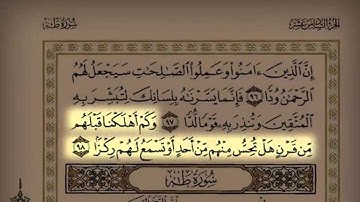 سُورَةُ طه الجُزءُ السَّادِسَ عَشَرَ
إِنَّ ٱلَّذِينَ ءَامَنُوا۟ وَعَمِلُوا۟ ٱلصَّٰلِحَٰتِ سَيَجْعَلُ لَهُمُ
ٱلرَّحْمَٰنُ وُدًّا ٩٦ فَإِنَّمَا يَسَّرْنَٰهُ بِلِسَانِكَ لِتُبَشِّرَ بِهِ
ٱلْمُتَّقِينَ وَتُنذِرَ بِهِۦ قَوْمًا لُّدًّا ٩٧ وَكَمْ أَهْلَكْنَا قَبْلَهُم
مِّن قَرْنٍ هَلْ تُحِسُّ مِنْهُم مِّنْ أَحَدٍ أَوْ تَسْمَعُ لَهُمْ رِكْزًۢا ٩٨
سُورَةُ طه